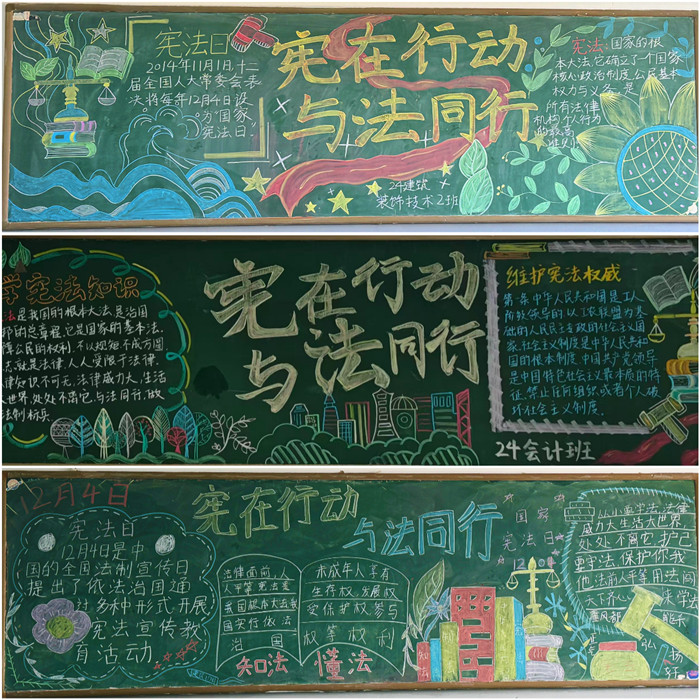 宪法日
2014年11月1日,十二
届全国人大常委会表
决将每年12月4日设
为"国家
宪法日".
宪在行动
与法同行
24建筑
装饰技术2班
宪法:国家的根
本大法,它确立了个国家
核心政治制度,公民基本
权力与义务,是
所有法律
机构,个人行为
的最高
准则
学宪法知识
法是我国的根本大法是治国
邦的总章程,它是国家的基本法.
障公民的权利.不以规矩不成方圆
就是法律.人人受限于法律.
律知识不可无,法律威力大,生活
世界,处处不离它,与法同行,做
法制标兵
宪在行动
与法同行
维护宪法权威
第一条中华人民共和国是工人
阶级领导的以工农联盟为基
础的人民民主专政的社会主义国
家.社会主义制度是中华人民共和
国的根本制度.中国共产党领导
是中国特色社会主义最本质的特
征.禁止任何组织或者个人破
坏社会主义制度.
24会计班
12月4日
宪法日
12月4日是中
国的全国法制宣传日
提出了依法治国通
过多种形式开展
宪法宣传教
育活动.
宪在行动
与法同行
法律面前,人
人平等宪法是
我国根本大法我
国实行依法
治国
知法
未成年人享有
生存权发展权
受保护权参与
权等权利
懂法
国家
宪法日
12.04
知法
学法
威力大生活大世界
处处不离它护己
要守法保护你我
他法前人平等用法间
天下齐心
来学法
弘
扬